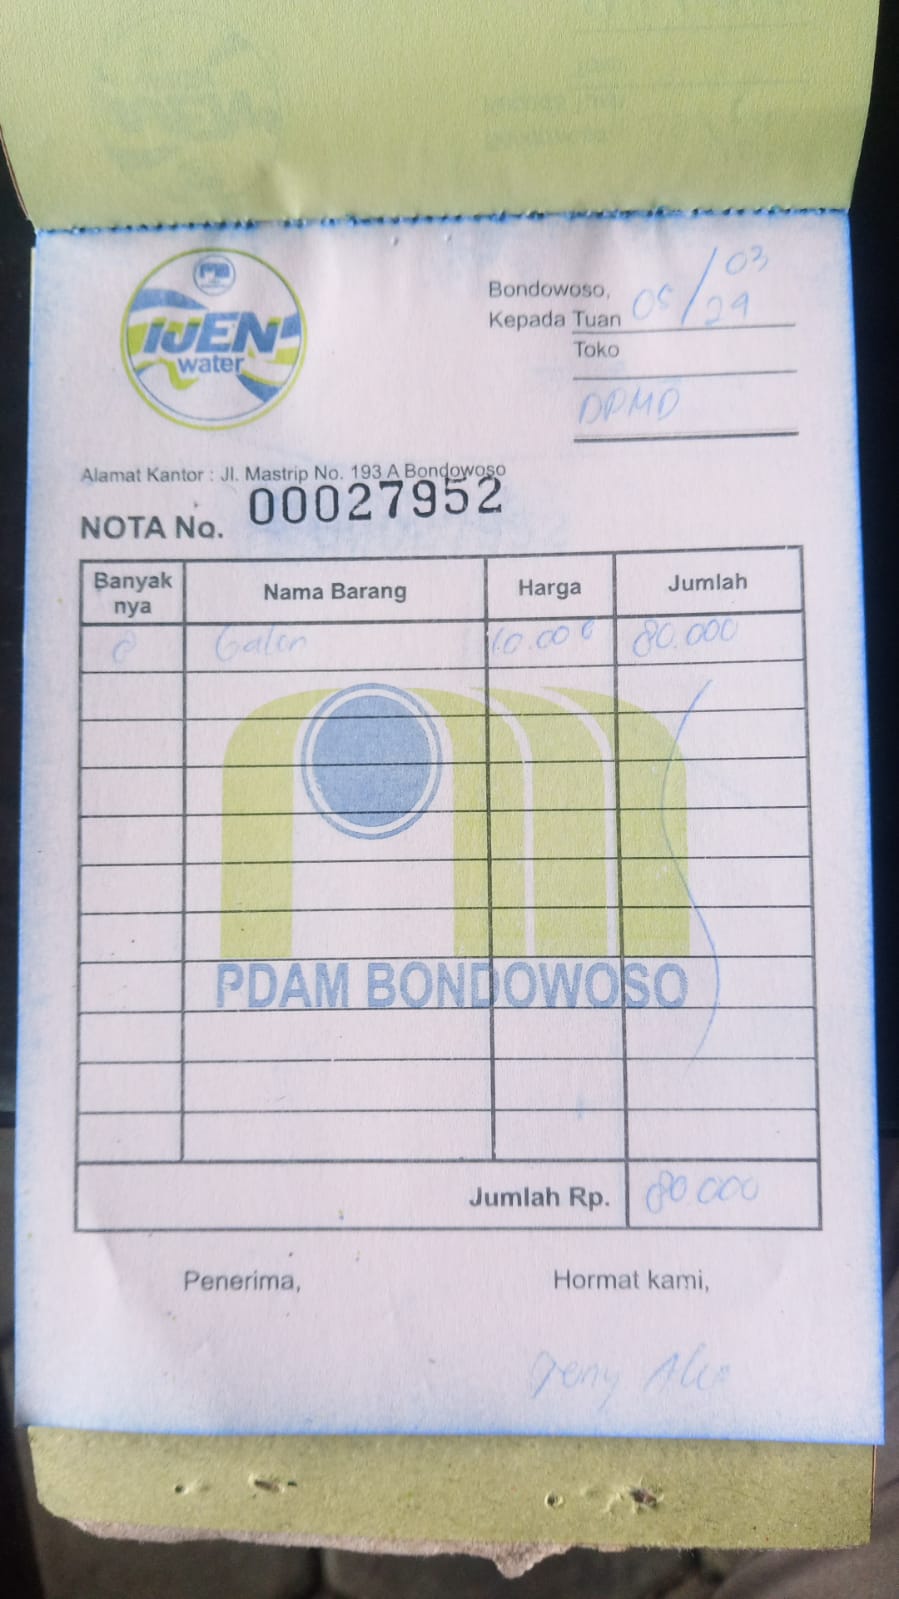 IJEN
water
Bondowoso, 05/03
Kepada Tuan 29
Toko
DPMD
Alamat Kantor : Jl. Mastrip No. 193 A Bondowoso
NOTA No. 00027952
Banyak nya Nama Barang Harga Jumlah
8 Galon 10.000 80.000
PDAM BONDOWOSO
Jumlah Rp. 80.000
Penerima, Hormat kami,